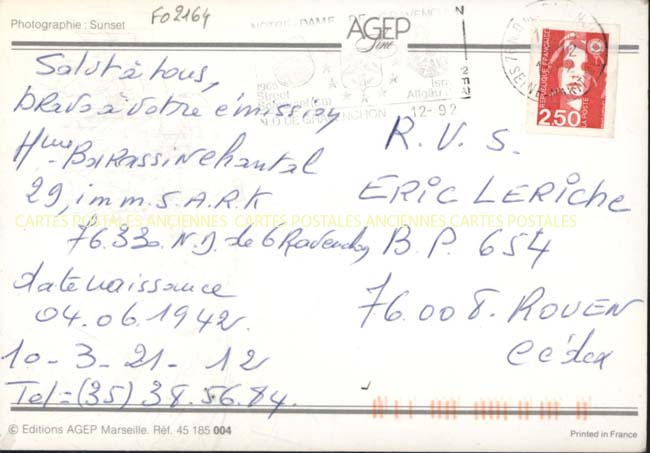 Photographie : Sunset
FO2164
AGEP
Line
NOTRE-DAME
1965
Street
Allgäu
N.D DE GRAVENCHON 12-92
REPUBLIQUE FRANÇAISE
LA POSTE
2,50
Salut à tous,
bravo à votre émission
Hme Barassin chantal
29, imm. S.A.R.K
76.330. N.D. de Gravenchon
date naissance
04.06.1942.
10-3-21-12
Tel=(35) 38.56.84.
R.V.S.
ERIC LERICHE
B.P. 654
76.008. ROUEN
Cédex
CARTES POSTALES ANCIENNES CARTES POSTALES ANCIENNES CARTES POSTALES
© Editions AGEP Marseille. Réf. 45 185 004
Printed in France